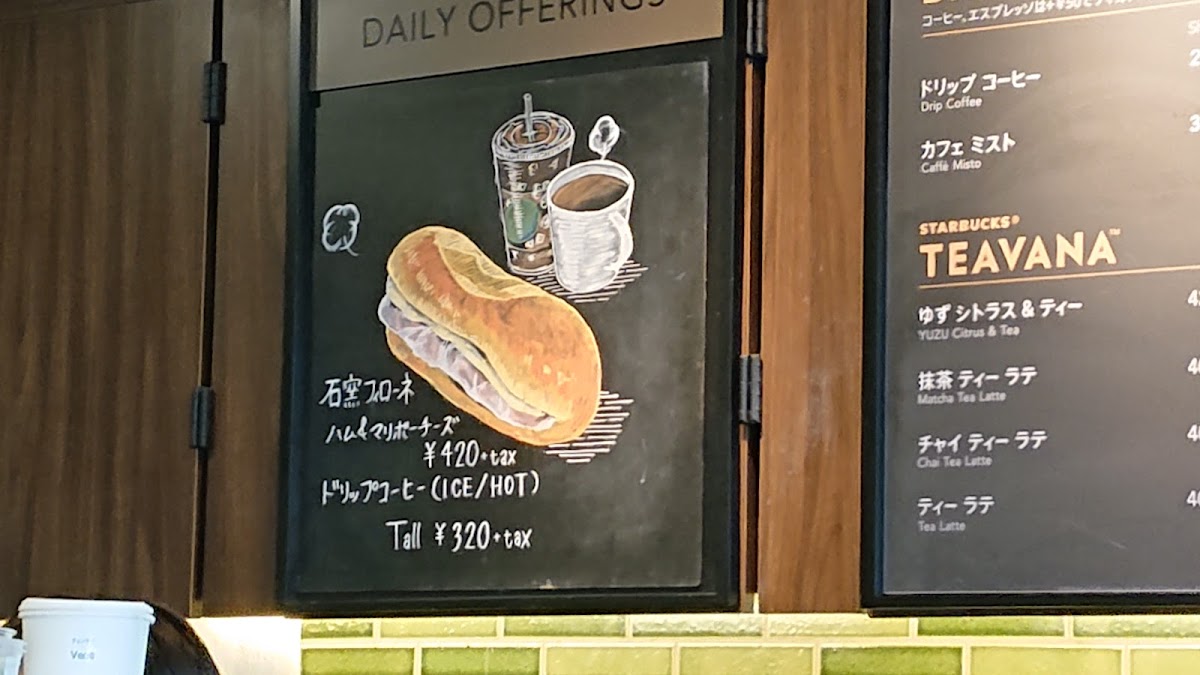 DAILY OFFERINGS
石窯フィローネ
ハム&マリボーチーズ
¥420+tax
ドリップコーヒー(ICE/HOT)
Tall ¥320+tax
コーヒー、エスプレッソは+¥50で
ドリップ コーヒー
Drip Coffee
カフェ ミスト
Caffè Misto
STARBUCKS®
TEAVANA™
ゆず シトラス & ティー
YUZU Citrus & Tea
抹茶 ティー ラテ
Matcha Tea Latte
チャイ ティー ラテ
Chai Tea Latte
ティー ラテ
Tea Latte